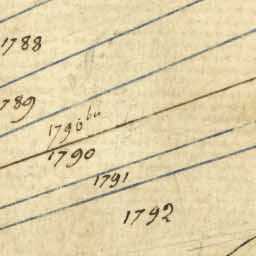 1788
1789
1790 bis
1790
1791
1792